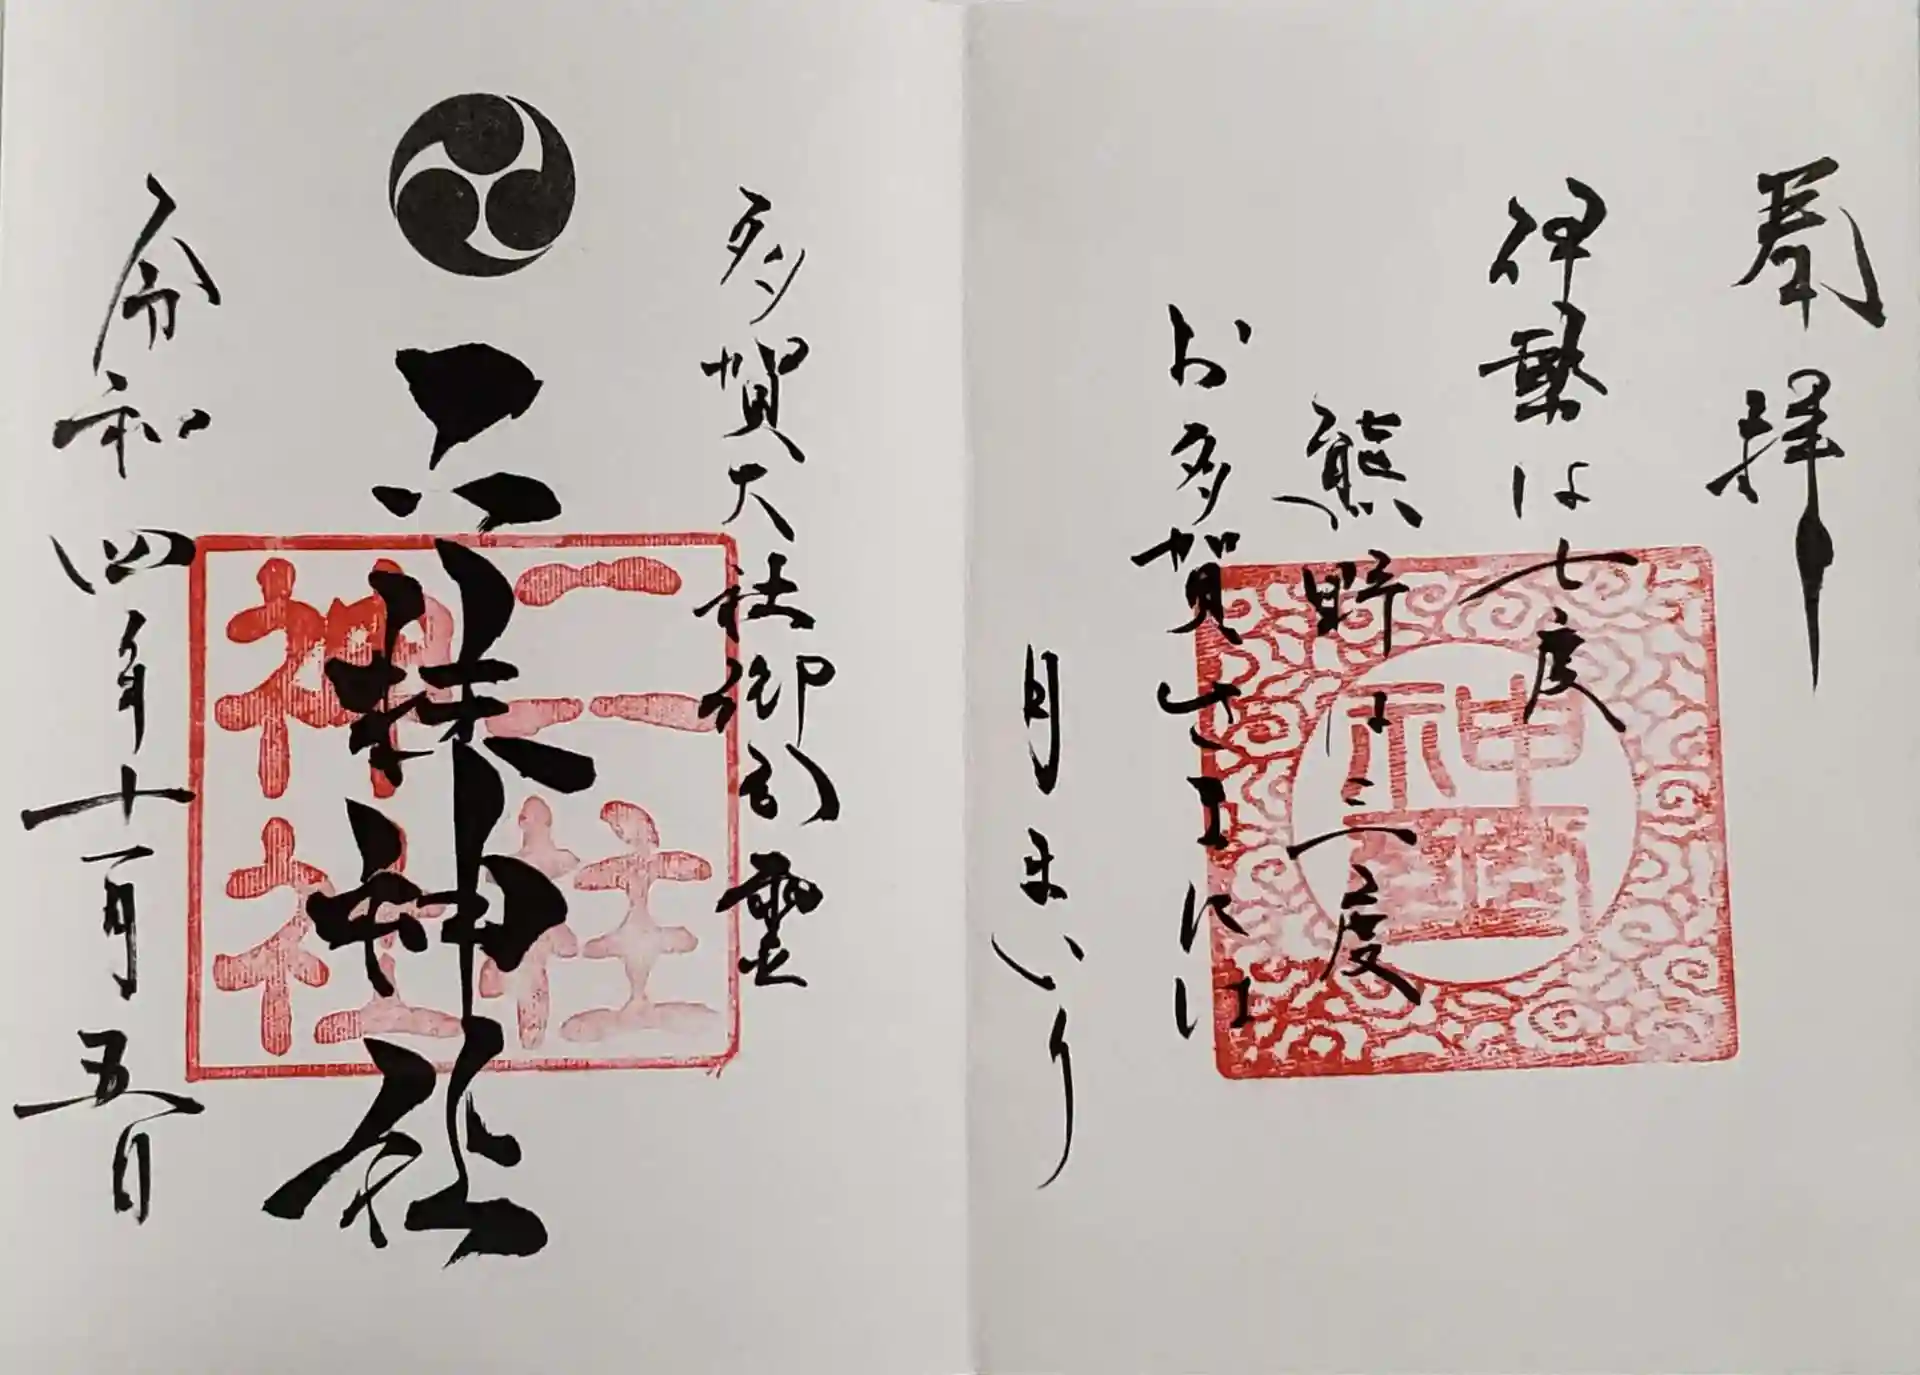 奉拝
伊勢は七度
熊野は三度
お多賀さまには
月まいり
多賀大社御分霊
二柱神社
二柱神社
令和四年十一月五日